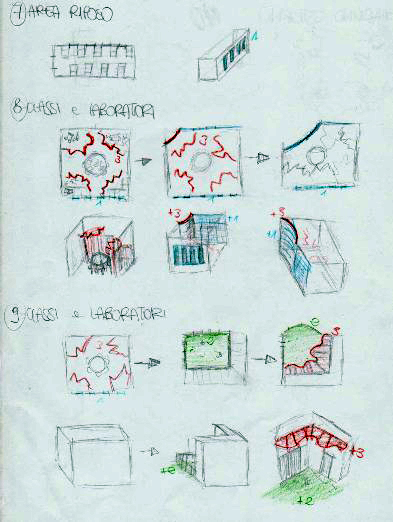 7 AREA RIPOSO
1
8 CLASSI e LABORATORI
3
1
3
1
+3
+1
+3
+1
9 CLASSI e LABORATORI
3
1
+2
2
3
+2
+3
+2